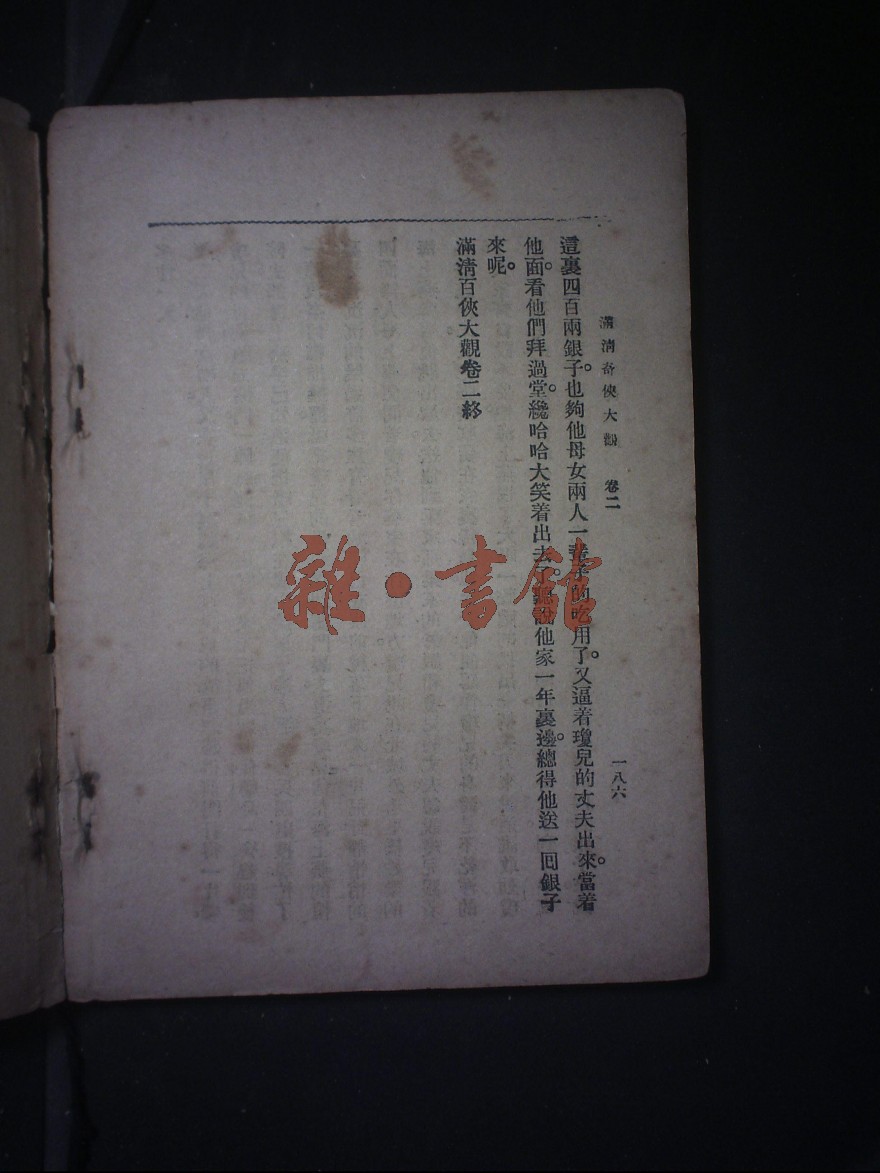 滿清奇俠大觀　卷二
一八六
這裏四百兩銀子。也夠他母女兩人一輩子的吃用了。又逼着瓊兒的丈夫出來。當着
他面。看他們拜過堂。纔哈哈大笑着出去了。聽說他家一年裏邊。總得他送一囘銀子
來呢。
滿清百俠大觀卷二終
雜·書館